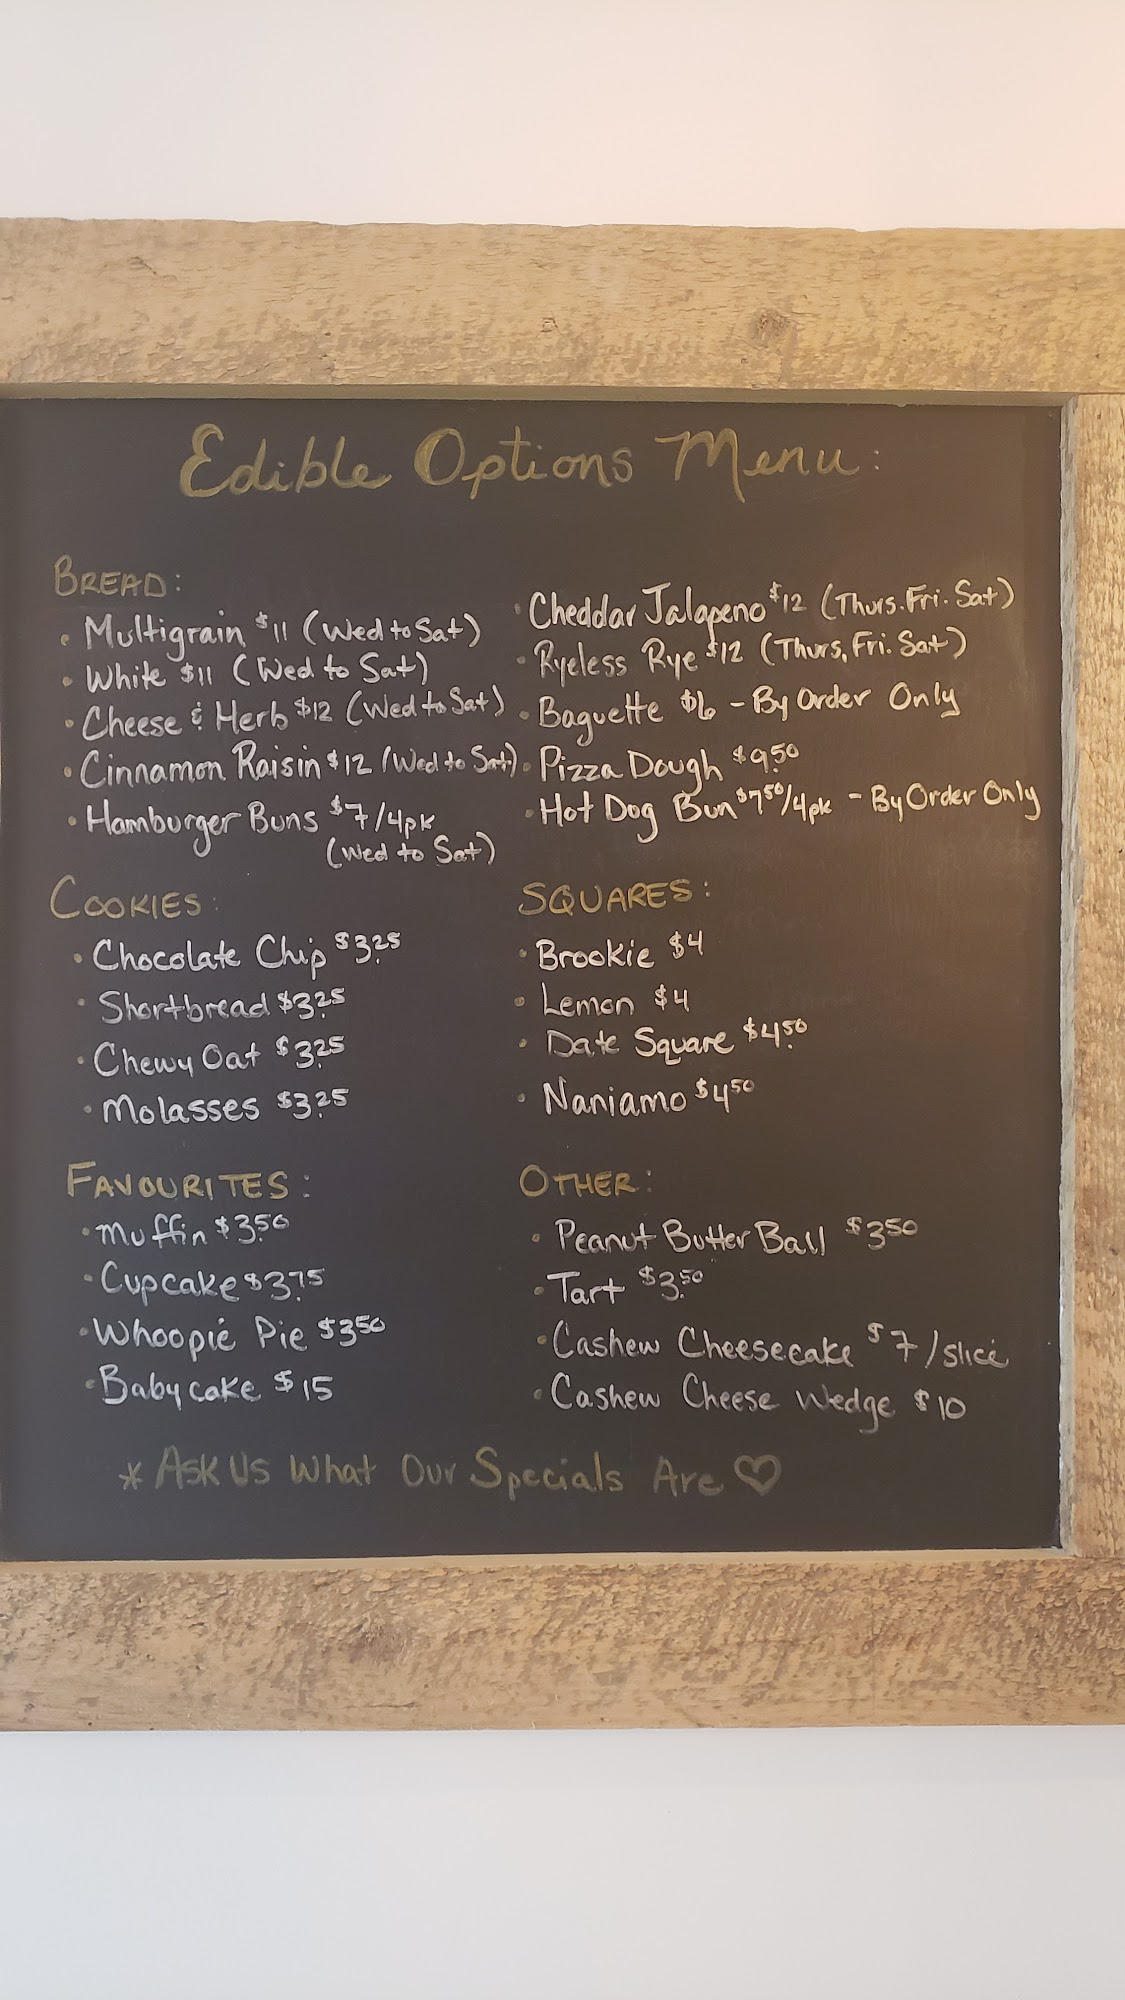 Edible Options Menu:
BREAD:
• Multigrain $11 (Wed to Sat)
• White $11 (Wed to Sat)
• Cheese & Herb $12 (Wed to Sat)
• Cinnamon Raisin $12 (Wed to Sat)
• Hamburger Buns $7/4pk
(Wed to Sat)
• Cheddar Jalapeno $12 (Thurs. Fri. Sat)
• Ryeless Rye $12 (Thurs, Fri. Sat)
• Baguette $6 - By Order Only
• Pizza Dough $9.50
• Hot Dog Bun $7.50/4pk - By Order Only
COOKIES:
• Chocolate Chip $3.25
• Shortbread $3.25
• Chewy Oat $3.25
• Molasses $3.25
SQUARES:
• Brookie $4
• Lemon $4
• Date Square $4.50
• Naniamo $4.50
FAVOURITES:
• Muffin $3.50
• Cupcake $3.75
• Whoopie Pie $3.50
• Babycake $15
OTHER:
• Peanut Butter Ball $3.50
• Tart $3.50
• Cashew Cheesecake $7/slice
• Cashew Cheese Wedge $10
* Ask Us What Our Specials Are ♡